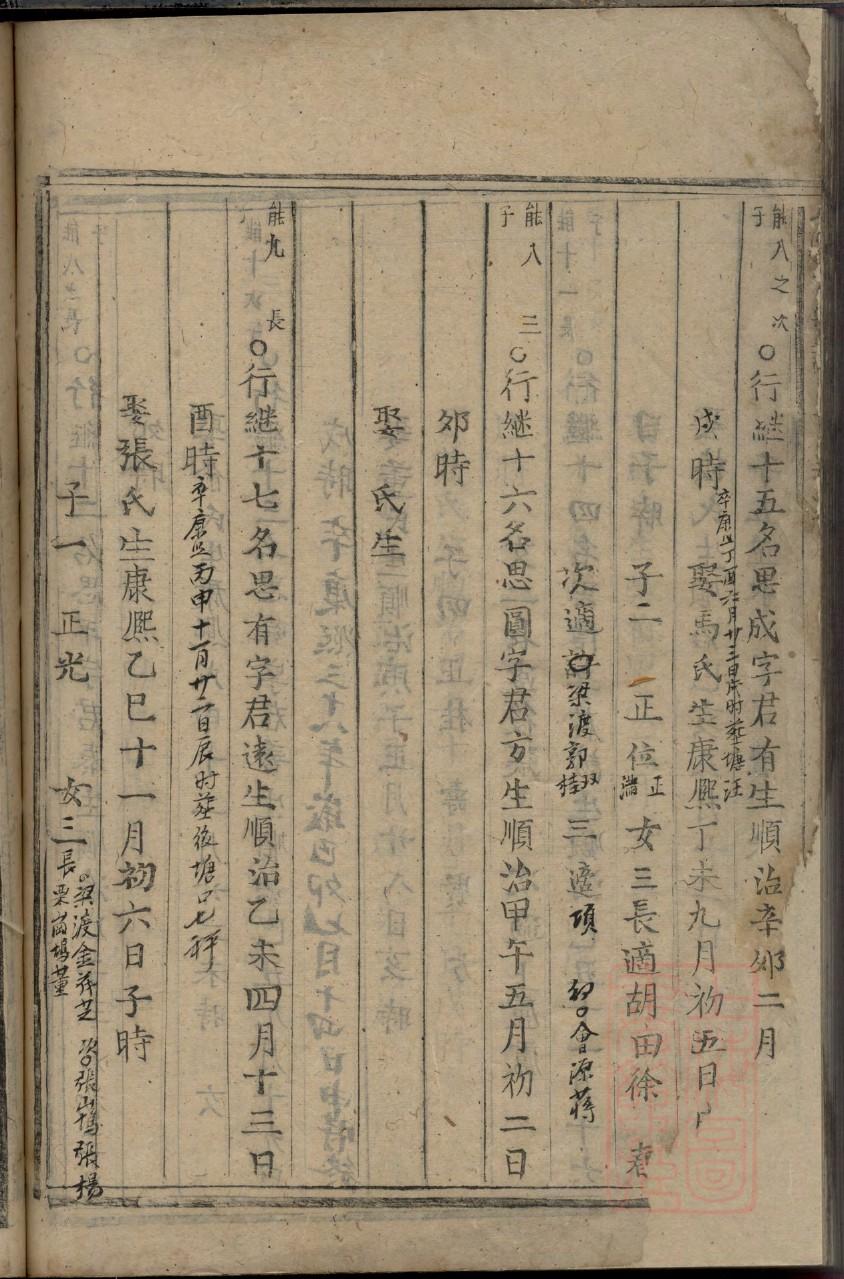 能八之次子
○行継十五名思成字君有生順治辛卯二月
戌時
卒康熙丁酉六月廿三日戌时葬塘汪
娶馬氏生康熙丁未九月初五日
子二 正位 正 女三長適胡田徐
次適 梁渡郭双桂 三適項 会源蒋
能八三子
○行継十六名思圖字君方生順治甲午五月初二日
卯時
娶 氏生
能九長子
○行継十七名思有字君遠生順治乙未四月十三日
酉時
卒康熙丙申十一月廿一日辰时葬後塘口
娶張氏生康熙乙巳十一月初六日子時
子一 正光 女三長
梁渡金 次 張 張楊
栗 塢董